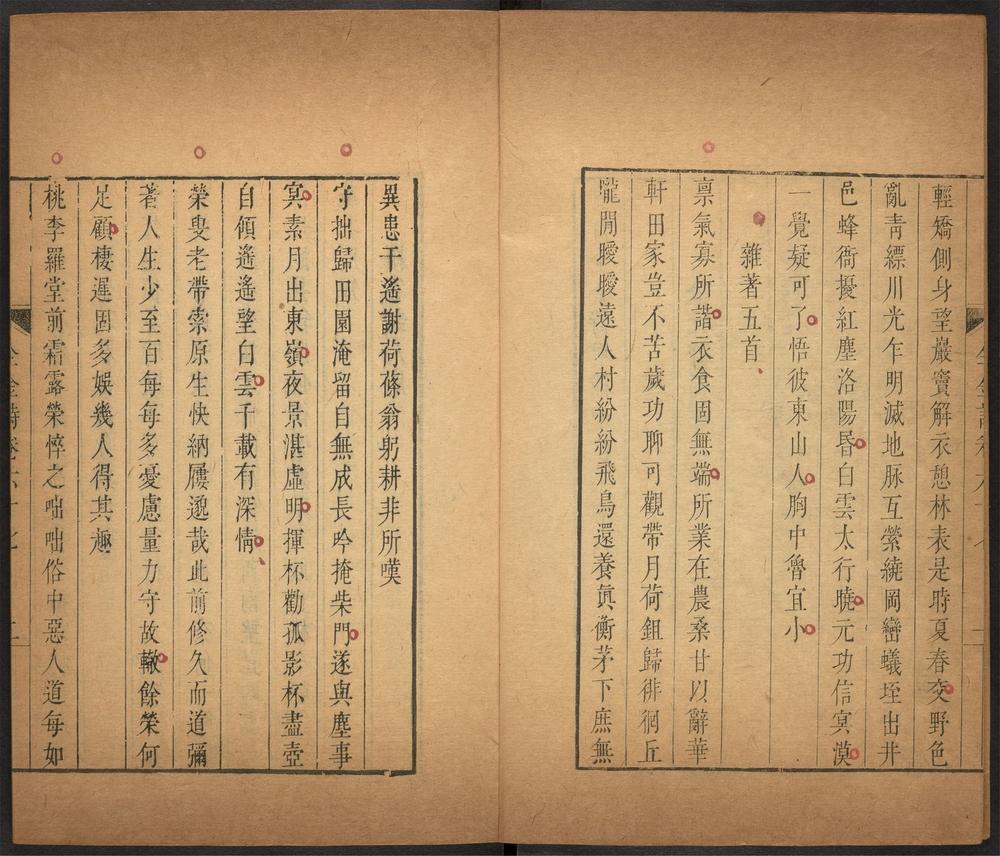 輕矯側身望巖竇解衣憩林表是時夏春交野色
亂靑縹川光乍明滅地脉互縈繞岡巒蟻垤出井
邑蜂衙擾紅塵洛陽昬白雲太行曉元功信冥漠
一覺疑可了悟彼東山人胸中魯宜小
雜著五首
禀氣寡所諧衣食固無端所業在農桑甘以辭華
軒田家豈不苦歲功聊可觀帶月荷鉏歸徘徊丘
隴閒曖曖遠人村紛紛飛鳥還養眞衡茅下庶無
異患干遙謝荷蓧翁躬耕非所嘆
守拙歸田園淹留自無成長吟掩柴門遂與塵事
冥素月出東嶺夜景湛虛明揮杯勸孤影杯盡壺
自傾遙遙望白雲千載有深情
榮叟老帶索原生快納屨邈哉此前修久而道彌
著人生少至百每每多憂慮量力守故轍餘榮何
足顧棲遲固多娛幾人得其趣
桃李羅堂前霜露榮悴之咄咄俗中惡人道每如
全金詩卷六十七
二